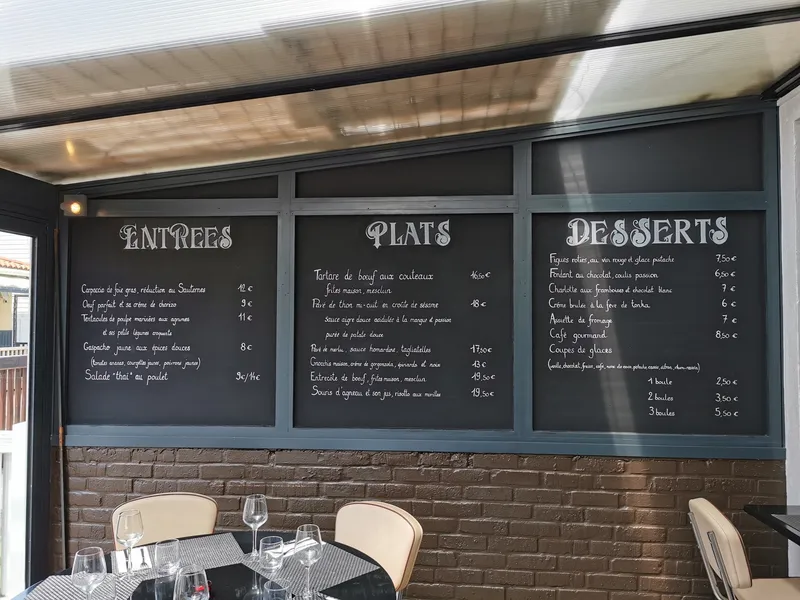 ENTREES
Carpaccio de foie gras, réduction au Sauternes 12 €
Oeuf parfait et sa crème de chorizo 9 €
Tentacules de poulpe marinées aux agrumes 11 €
et ses petits légumes croquants
Gaspacho jaune aux épices douces 8 €
(tomates ananas, courgettes jaunes, poivrons jaunes)
Salade "thaï" au poulet 9€/14€
PLATS
Tartare de bœuf aux couteaux 16,50 €
frites maison, mesclun
Pavé de thon mi-cuit en croûte de sésame 18 €
sauce aigre douce acidulée à la mangue et passion
purée de patate douce
Pavé de merlu, sauce homardine, tagliatelles 17,50 €
Gnocchis maison, crème de gorgonzola, speck et noix 13 €
Entrecôte de bœuf, frites maison, mesclun 19,50 €
Souris d'agneau et son jus, risotto aux morilles 19,50 €
DESSERTS
Figues roties, au vin rouge et glace pistache 7,50 €
Fondant au chocolat, coulis passion 6,50 €
Charlotte aux framboises et chocolat blanc 7 €
Crème brulée à la fève de tonka 6 €
Assiette de fromage 7 €
Café gourmand 8,50 €
Coupes de glaces
(vanille, chocolat, fraise, café, citron, rhum raisin)
1 boule 2,50 €
2 boules 3,50 €
3 boules 5,50 €